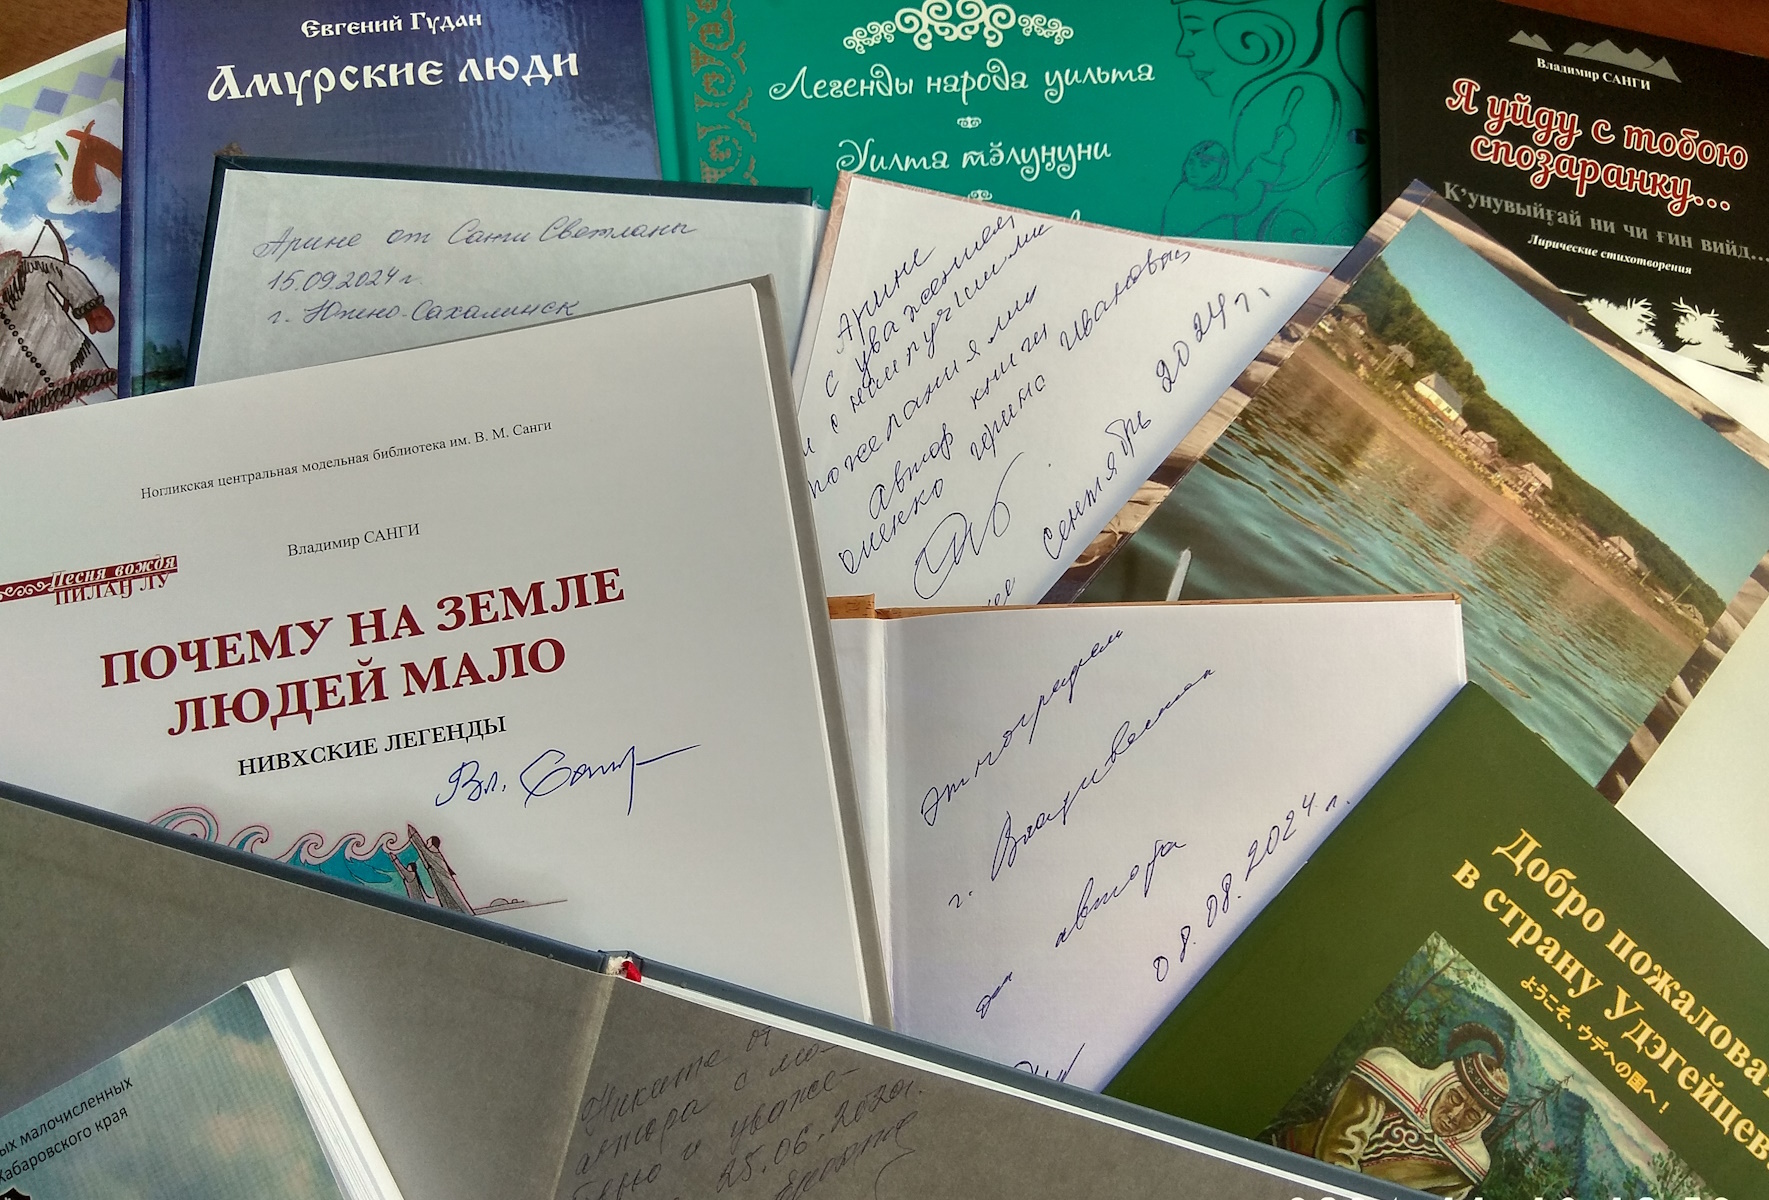 Евгений Гудан
Амурские люди
Легенды народа уильта
Уилта тэ̄луӈуни
Владимир САНГИ
Я уйду с тобою
спозаранку...
К’унувыйғай ни чи ғин вийд...
Лирические стихотворения
Арине от Санги Светланы
15.09.2024 г.
г. Южно-Сахалинск
Арине
с уважением
и с наилучшими
пожеланиями
автор книги
Ивановы
сентябрь 2024 г.
Ногликская центральная модельная библиотека им. В. М. Санги
Владимир САНГИ
Песня вождя
ПИЛАӇ ЛУ
ПОЧЕМУ НА ЗЕМЛЕ
ЛЮДЕЙ МАЛО
НИВХСКИЕ ЛЕГЕНДЫ
Вл. Санги
г.
автора
08.08.2024 г.
Добро пожаловат
в страну Удэгейцев
ようこそ、ウデヘの国へ！
ых малочисленных
Хабаровского края
Никите от
автора с
и уваже-
25.06.